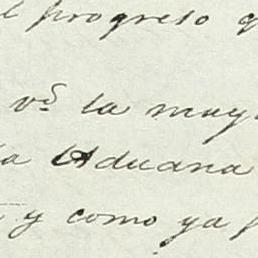 el progreso q
vd. la may
la Aduana
y como ya p